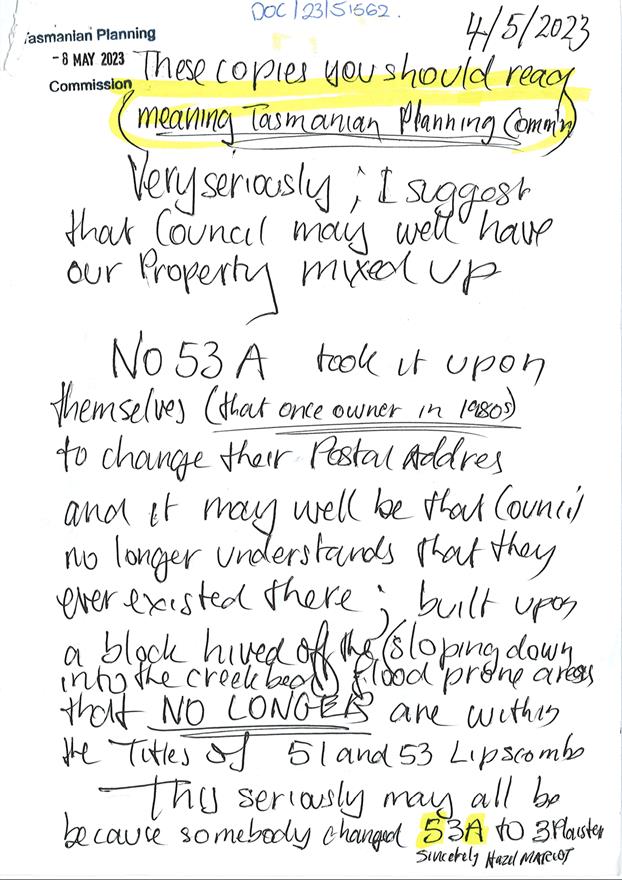 DOC/23/51562.
4/5/2023
Tasmanian Planning
- 8 MAY 2023
Commission
These copies you should read
(meaning Tasmanian Planning Comm'n)
Very seriously ; I suggest
that Council may well have
our Property mixed up
No 53 A took it upon
themselves (that once owner in 1980s)
to change their Postal Addres
and it may well be that Council
no longer understands that they
ever existed there ; built upon
a block hived off the (sloping down
into the creek bed) flood prone areas
that NO LONGER are within
the Titles of 51 and 53 Lipscombe
This seriously may all be
because somebody changed 53A to 3
Sincerely Hazel